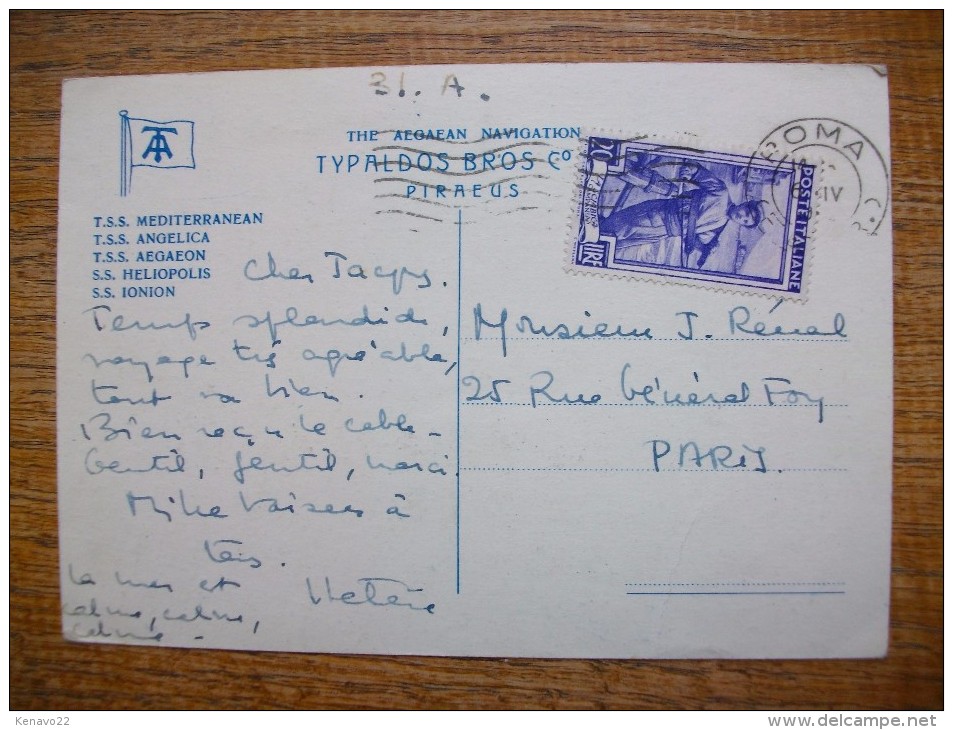 31. A.
THE AEGAEAN NAVIGATION
TYPALDOS BROS Co
PIRAEUS
T.S.S. MEDITERRANEAN
T.S.S. ANGELICA
T.S.S. AEGAEON
S.S. HELIOPOLIS
S.S. IONION
20
LIRE
POSTE ITALIANE
ROMA
IV
Cher Jacques.
Temps splendide,
voyage très agréable,
tout va bien.
Bien reçu le cable -
Gentil, gentil, merci.
Mille baisers à
tous.
Hélène
La mer est
calme, calme,
calme -
Monsieur J. Rénal
25 Rue Général Foy
PARIS.
Kenavo22
delcampe.net